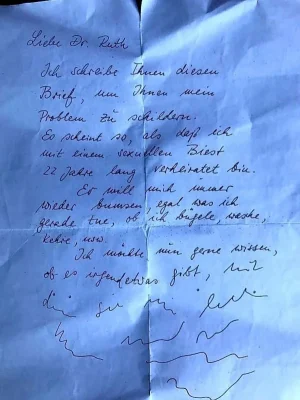 Liebe Dr. Ruth
Ich schreibe Ihnen diesen
Brief, um Ihnen mein
Problem zu schildern.
Es scheint so, als daß ich
mit einem sexuellen Biest
22 Jahre lang verheiratet bin.
Er will mich immer
wieder bumsen, egal was ich
gerade tue, ob ich bügele, wasche,
kehre, usw.
Ich möchte nun gerne wissen,
ob es irgendetwas gibt, mit